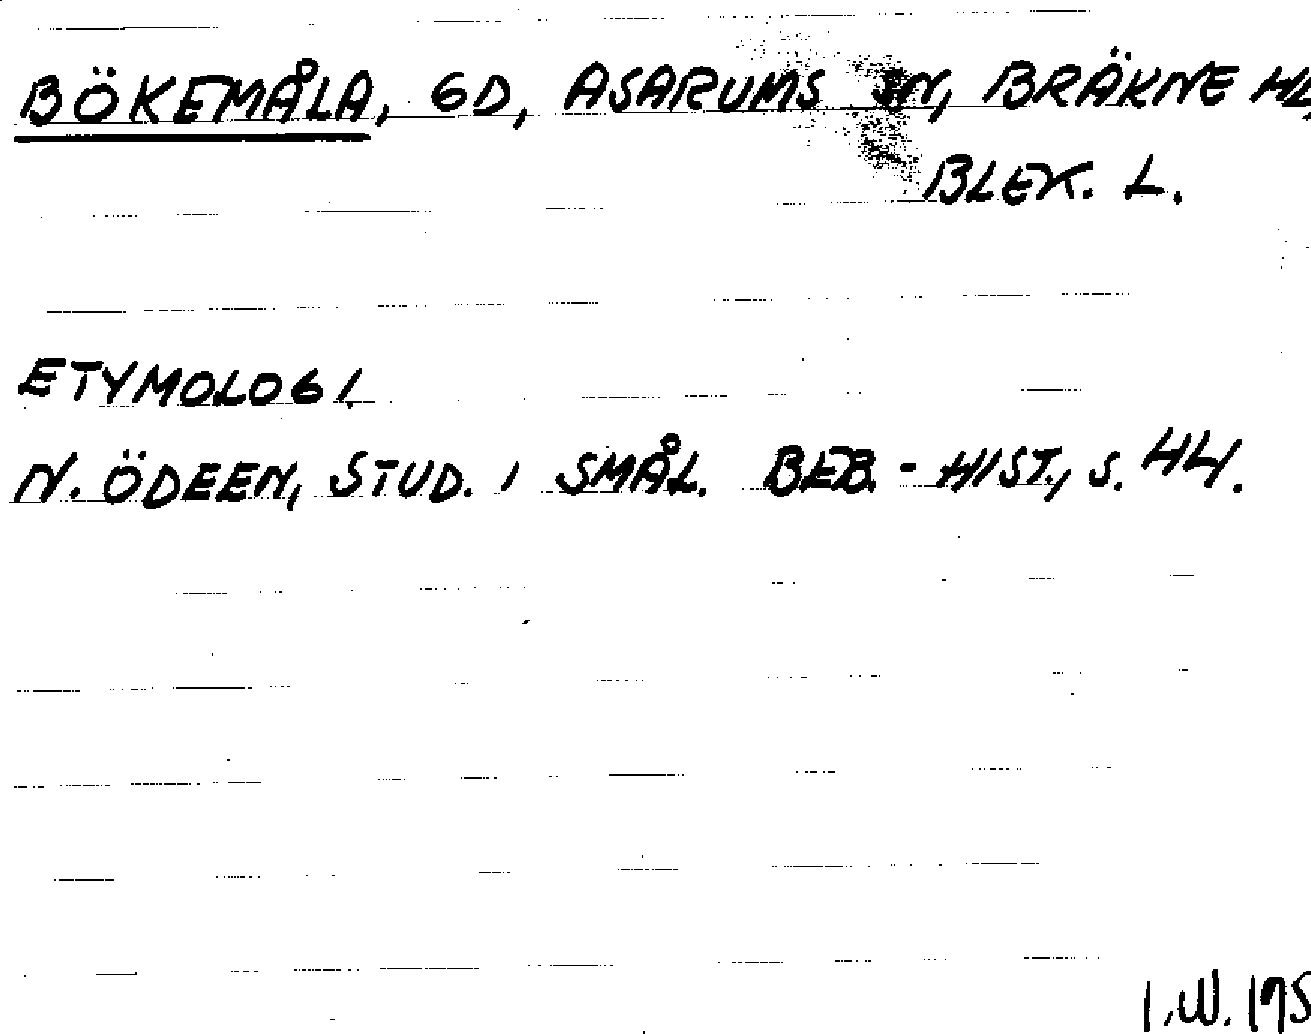 BÖKEMÅLA, GD, ASARUMS SN, BRÄKNE HD,
BLEK. L.
ETYMOLOGI.
N. ÖDEEN, STUD. I SMÅL. BEB.-HIST., S. 44.
I.W.